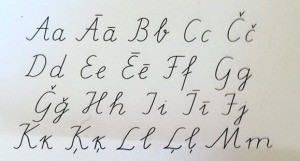 Aa Āā Bb Cc Čč
Dd Ee Ēē Ff Gg
Ģģ Hh Ii Īī Jj
Kk Ķķ Ll Ļļ Mm